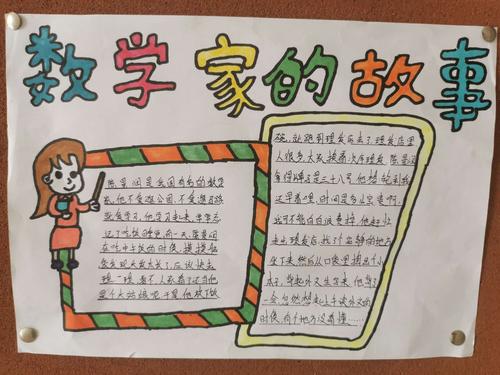 数学家的故事
陈景润是我国有名的数学
家,他不爱逛公园,不爱遛马路
就爱学习,他学习起来,常常忘
记了吃饭睡觉,有一天,陈景润
在吃中午饭的时候,摸摸脑
袋发现头发太长了,应该快去
理一理,要不人家看了还当他
是个大姑娘呢,于是他放下饭
碗,就跑到理发店去了,理发店里
人很多,大家挨着次序理发,陈景润
拿得牌子是三十八号,他想:轮到我
还早着哩,时间是多么宝贵啊,
我可不能白白浪费掉,他赶忙
走出理发店,找了个安静的地方
坐下来,然后从口袋里掏出个小
本子,背起外文生字来,他背了
一会,忽然想起上午读外文的
时候,有个地方没看懂……